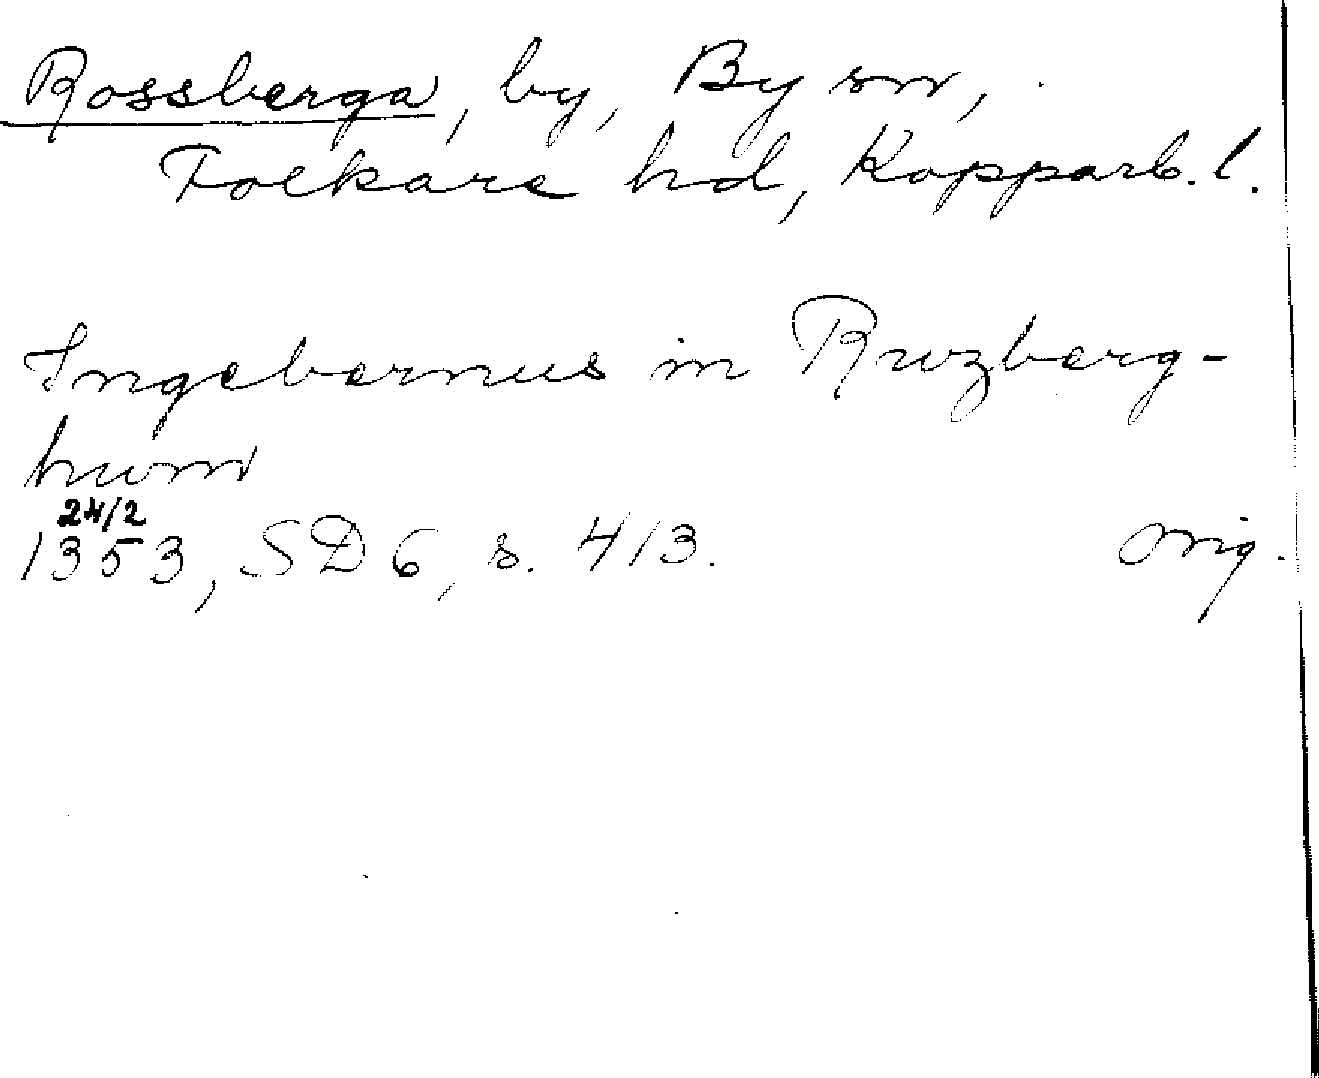 Rossberga, by, By sn,
Folkare hd, Kopparb. l.
Ingebernus in Ruzberg-
hum
24/2
1353, SD 6, s. 413. orig.